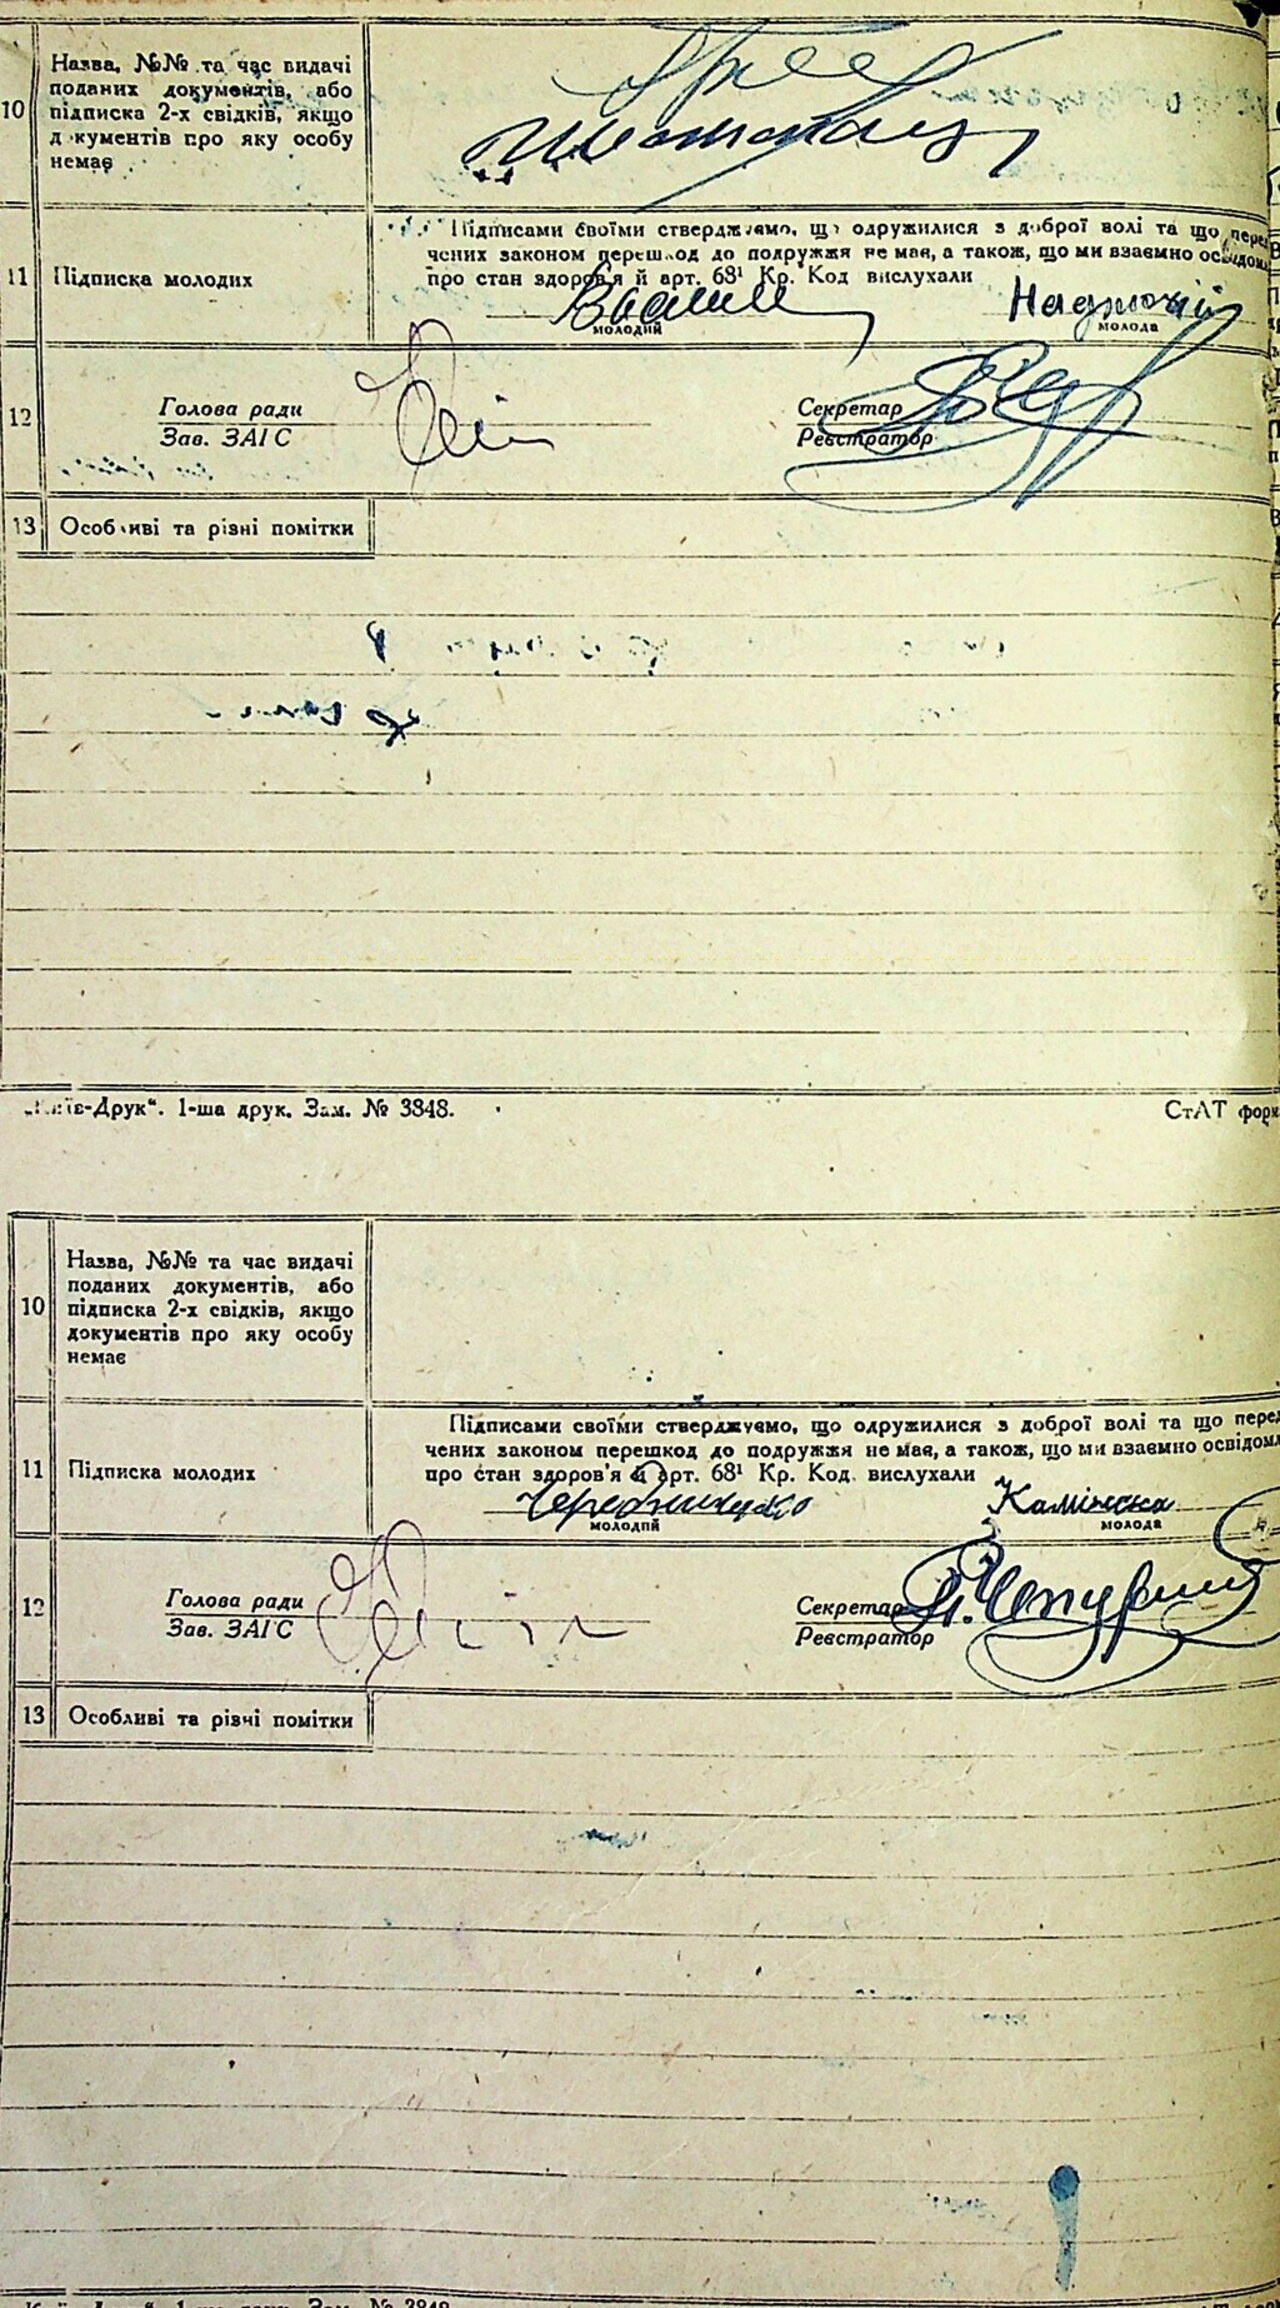 10
Назва, №№ та час видачі
поданих документів, або
підписка 2-х свідків, якщо
д кументів про яку особу
немає
11
Підписка молодих
Підписами своїми стверджуємо, що одружилися з доброї волі та що перед
чених законом перешкод до подружжя не має, а також, що ми взаємно освідом
про стан здоров'я й арт. 68¹ Кр. Код вислухали
молодий
молода
12
Голова ради
Зав. ЗАГС
Секретар
Реєстратор
13
Особливі та різні помітки
„Київ-Друк“. 1-ша друк. Зам. № 3848.
СтАТ форм
10
Назва, №№ та час видачі
поданих документів, або
підписка 2-х свідків, якщо
документів про яку особу
немає
11
Підписка молодих
Підписами своїми стверджуємо, що одружилися з доброї волі та що перед
чених законом перешкод до подружжя не має, а також, що ми взаємно освідомл
про стан здоров'я й арт. 68¹ Кр. Код. вислухали
Чередниченко Камінська
молодий
молода
12
Голова ради
Зав. ЗАГС
Секретар
Реєстратор
13
Особливі та різні помітки
1-ша друк. Зам. № 3848